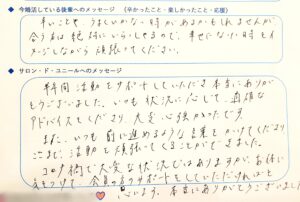 ◆ 今婚活している後輩へのメッセージ (辛かったこと・楽しかったこと・応援)
辛いことや、うまくいかない時があるかもしれませんが
合う方は絶対にいらっしゃるので、幸せになった時をイ
メージしながら頑張ってください。
◆ サロン・ド・ユニールへのメッセージ
半年間 活動をサポートしていただき本当にありが
とうございました。いつも状況に応じて、適確な
アドバイスをくださり 大変心強かったです。
また、いつも前に進めるような言葉をかけてくださり
ここまで活動を頑張ってくることができました。
コロナ禍で大変な状況ではありますが、お体に
気をつけて、会員の方のサポートをしていただければと
思います。本当にありがとうございました